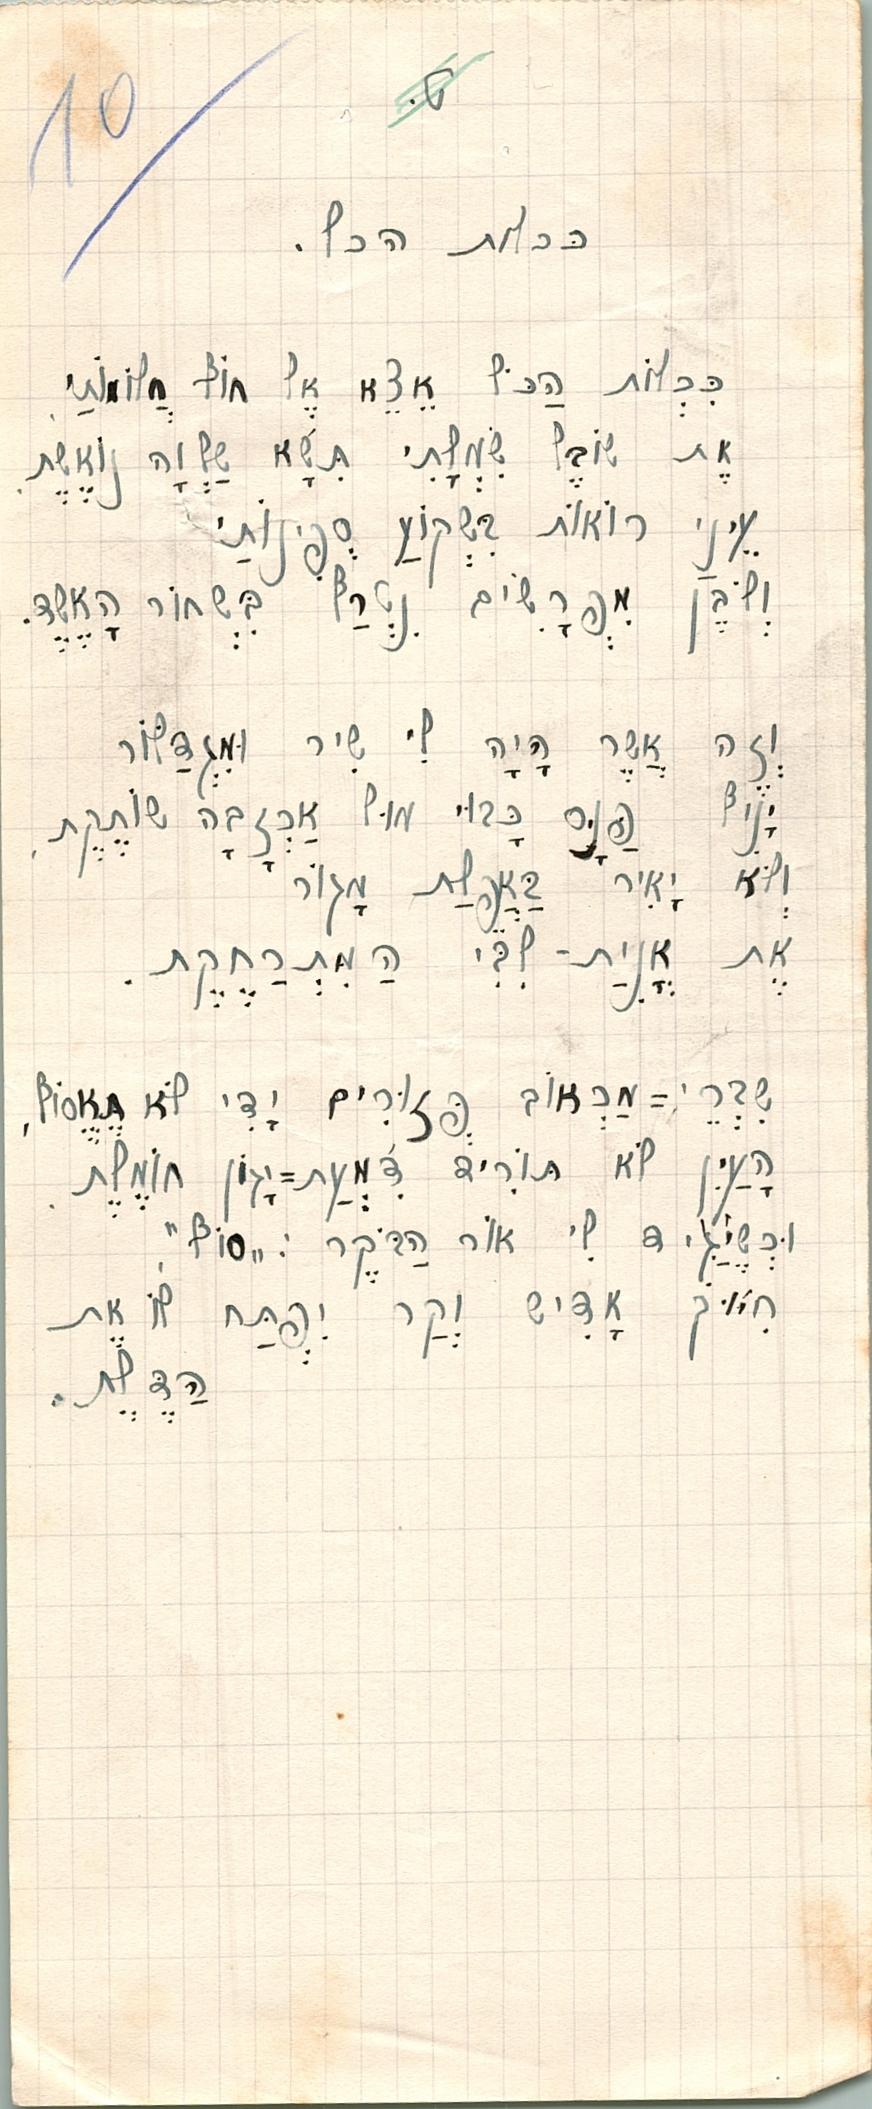 10
ט.
ככלות הכל.
כִּכְלוֹת הַכּל אֵצֵא אֶל חוֹף חֲלוֹמוֹתַי,
אֶת שׁוֹבֶל שִׂמְלָתִי תִּשָּׂא שַׁלְוָה נוֹאֶשֶׁת.
עֵינַי רוֹאוֹת בִּשְׁקוֹעַ סְפִינוֹתַי
וְלוֹבֶן מִפְרָשִׂים נִטְרַף בִּשְׁחוֹר הָאֶשֶׁד.
וְזֶה אֲשֶׁר הָיָה לִי שִׁיר וּמִגְדַּלּוֹר
יָנִיף פַּנָּס כָּבוּי מוּל אַכְזָבָה שׁוֹתֶקֶת,
וְלֹא יָאִיר בַּאֲפֵלַת מָגוֹר
אֶת אֳנִיַּת-לִבִּי הַמִּתְרַחֶקֶת.
שִׁבְרֵי=מַכְאוֹב פְּזוּרִים יָדִי לֹא תֶּאֱסוֹף,
הָעַיִן לֹא תּוֹרִיד דִּמְעַת=יָגוֹן חוֹמֶלֶת.
וּכְשֶׁיַּגִּיד לִי אוֹר הַבֹּקֶר: „סוֹף”,
חִיּוּךְ אָדִישׁ וְקַר יִפְתַּח לוֹ אֶת
הַדֶּלֶת.